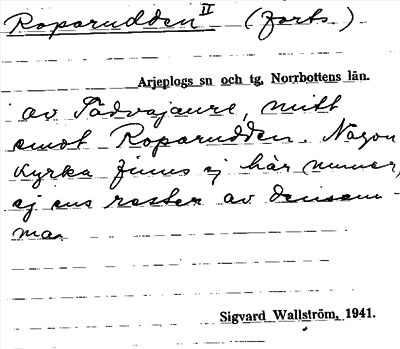 Roparudden II (forts.)
Arjeplogs sn och tg, Norrbottens län.
av Tadvajaure, mitt
emot Roparudden. Någon
kyrka finns ej här numer,
ej ens rester av densam-
ma.
Sigvard Wallström, 1941.